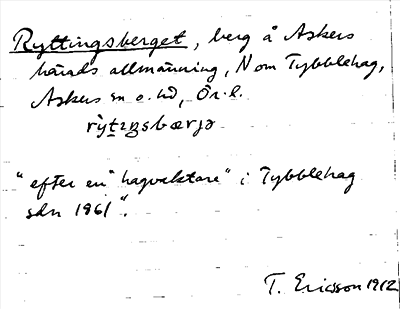 Ryttingsberget, berg å Askers
härads allmänning, N om Tybblehag,
Askers sn o. hd, Ör. l.
rỳtıŋsbærjə
"efter en "hagvaktare" i Tybblehag
sdn 1961".
T. Ericsson 1912